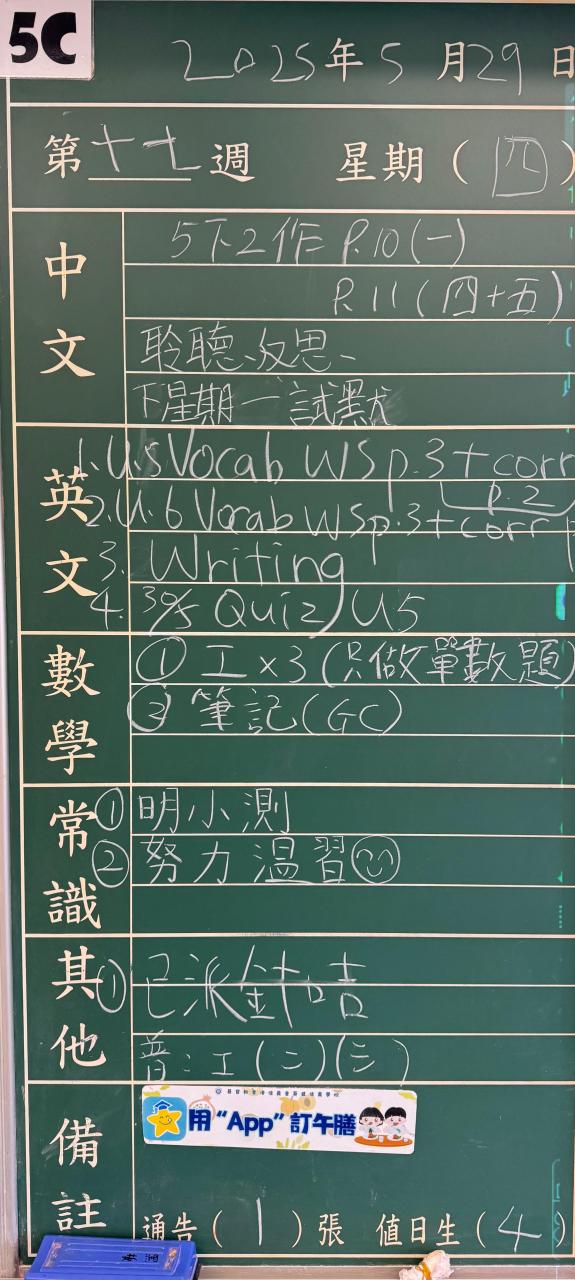 5C
2025年5月29日
第十七週 星期(四)
中文
5下2作 P.10(一)
P.11(四+五)
聆聽、反思、
下星期一試默
英文
1. U.5 Vocab WS p.3 + corr
p.2
2. U.6 Vocab WS p.3 + corr
3. Writing
4. 30/5 Quiz U5
數學
① 工x3(只做單數題)
② 筆記(GC)
常識
① 明小測
② 努力溫習
其他
① 已派
普:工(二)(三)
備註
用“App”訂午膳
通告(1)張 值日生(4)